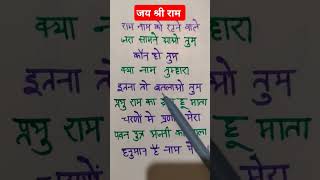 जय श्री राम
राम नाम को रटने वाले
जरा सामने आओ तुम
कौन हो तुम
क्या नाम तुम्हारा
इतना तो बतलाओ तुम
प्रभु राम का हू माता
चरणो मे प्रणाम मेरा
पवन पुत्र अन्जनी का लाला
हनुमान है नाम मेरा